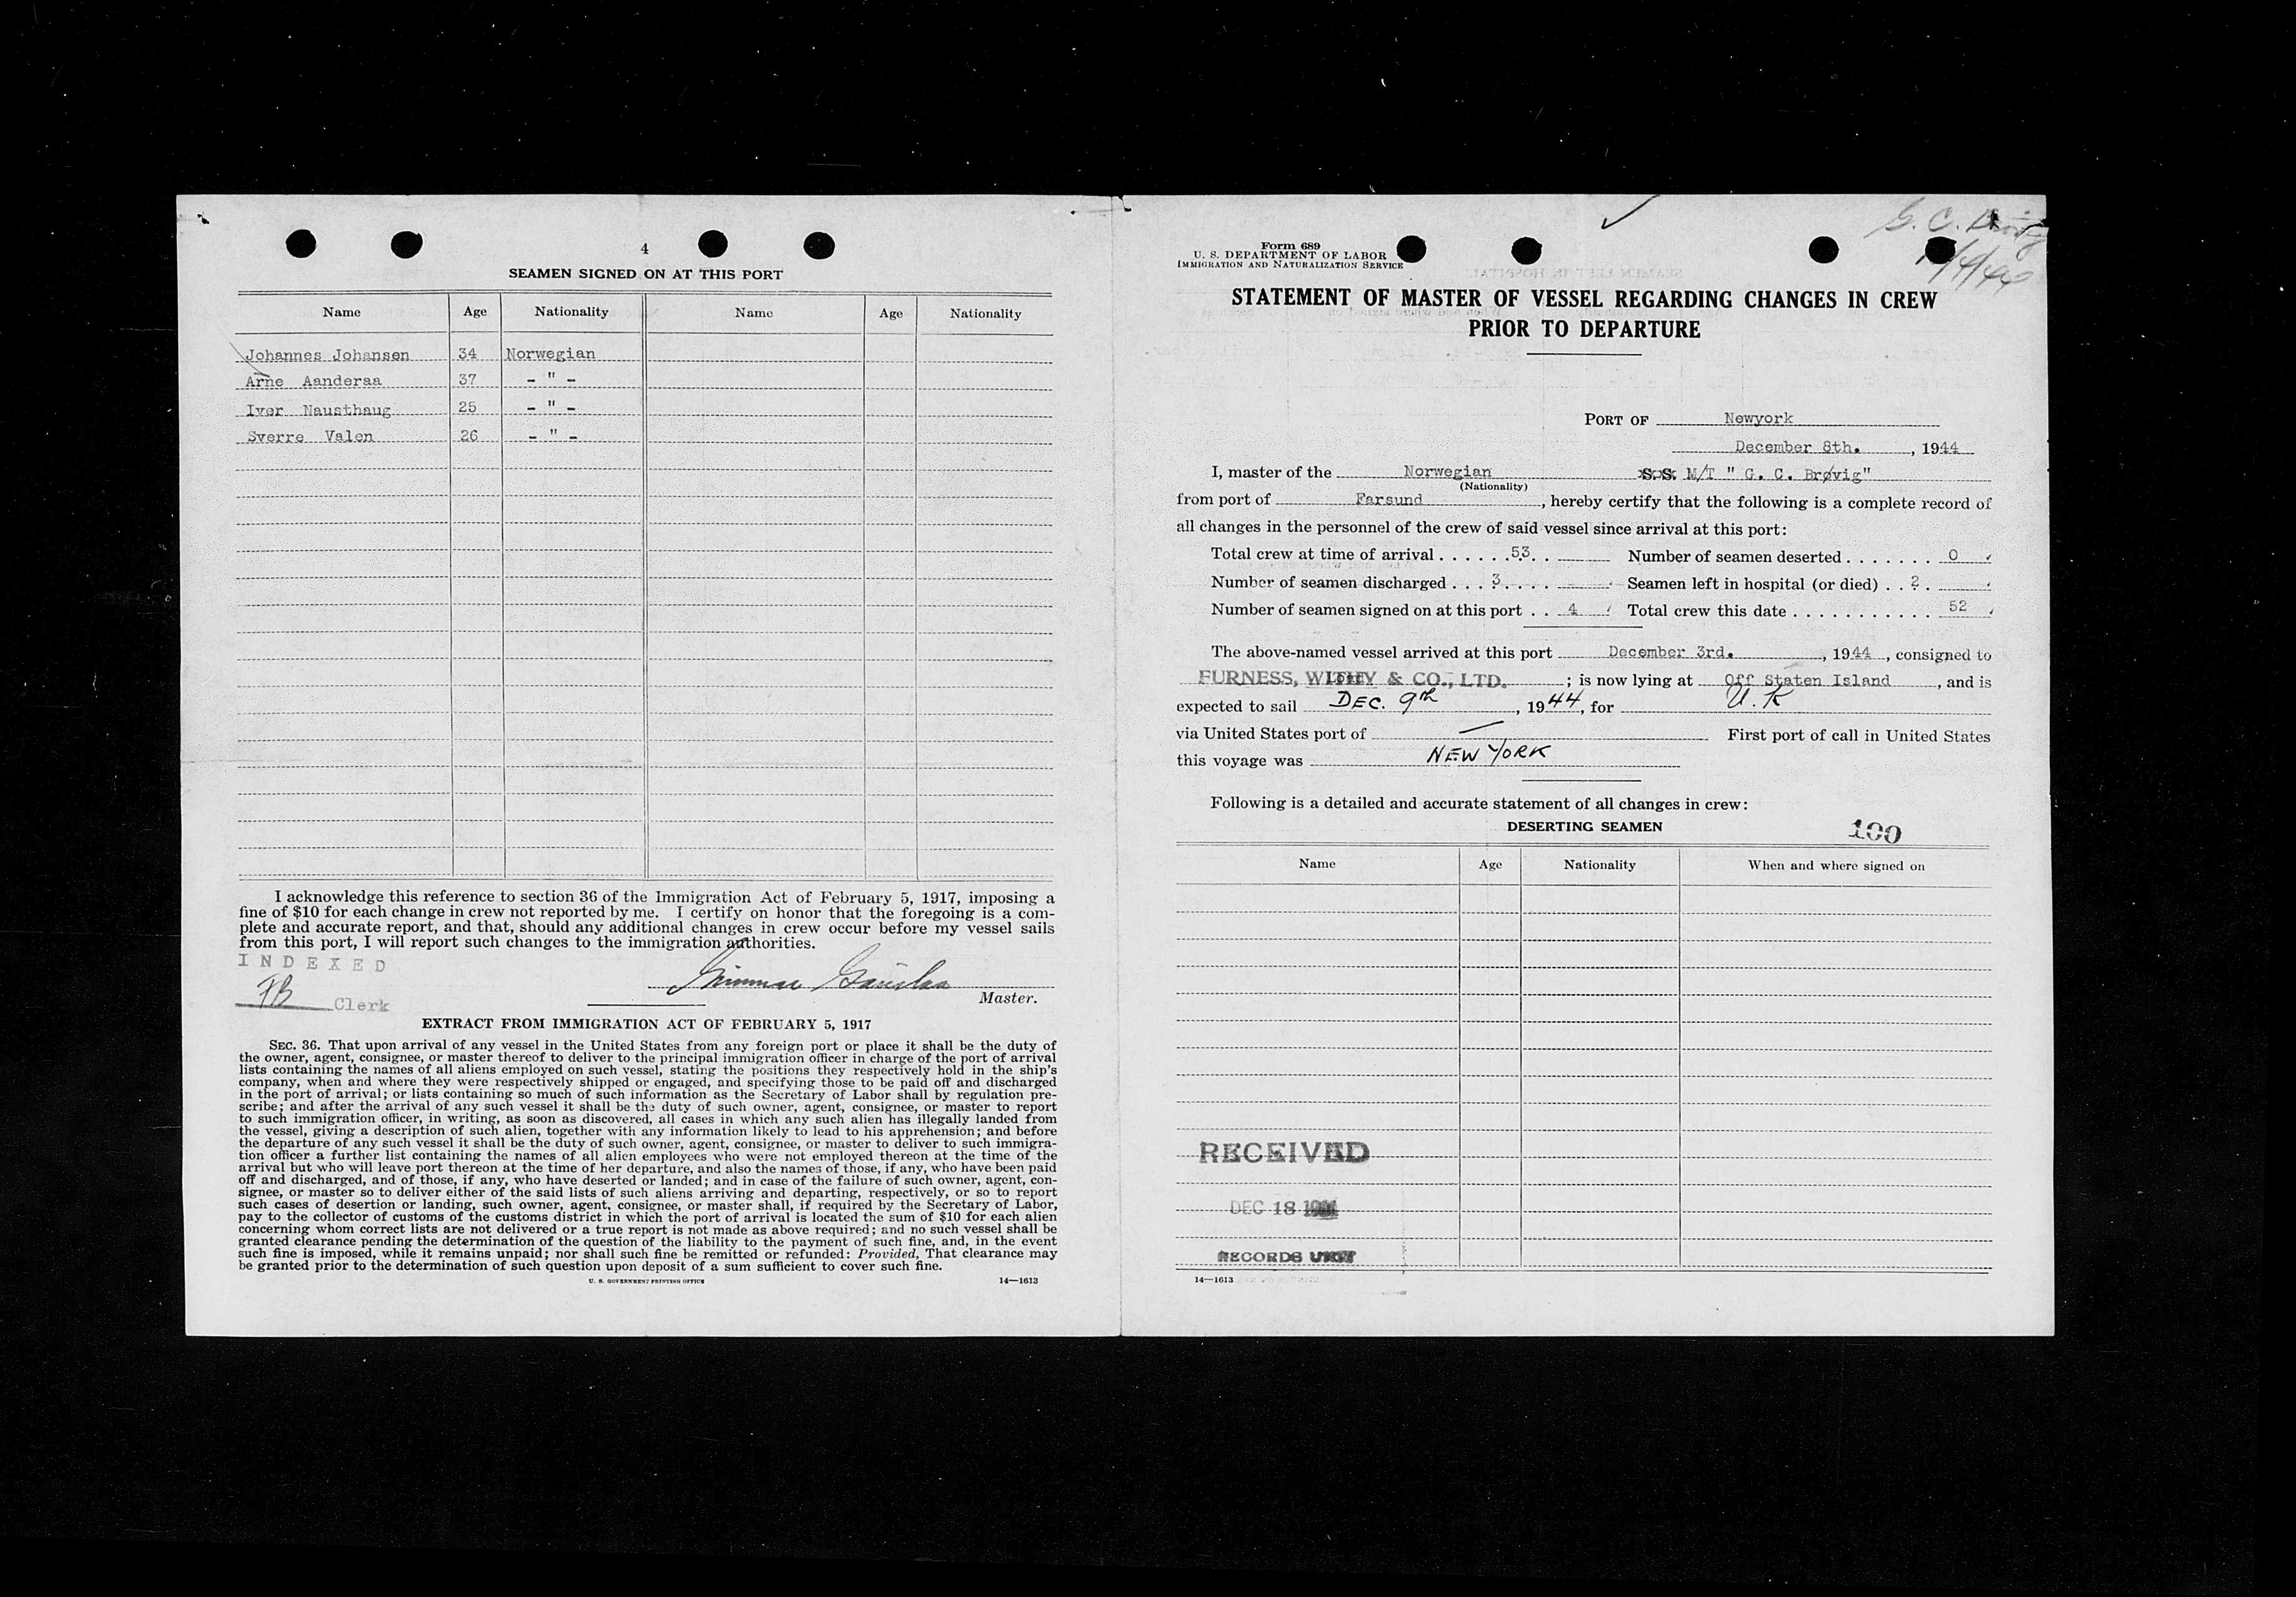 4
SEAMEN SIGNED ON AT THIS PORT
Name Age Nationality Name Age Nationality
Johannes Johansen 34 Norwegian
Arne Aanderaa 37 - " -
Iver Nausthaug 25 - " -
Sverre Valen 26 - " -
I acknowledge this reference to section 36 of the Immigration Act of February 5, 1917, imposing a
fine of $10 for each change in crew not reported by me. I certify on honor that the foregoing is a com-
plete and accurate report, and that, should any additional changes in crew occur before my vessel sails
from this port, I will report such changes to the immigration authorities.
INDEXED
FB Clerk
Master.
EXTRACT FROM IMMIGRATION ACT OF FEBRUARY 5, 1917
SEC. 36. That upon arrival of any vessel in the United States from any foreign port or place it shall be the duty of
the owner, agent, consignee, or master thereof to deliver to the principal immigration officer in charge of the port of arrival
lists containing the names of all aliens employed on such vessel, stating the positions they respectively hold in the ship's
company, when and where they were respectively shipped or engaged, and specifying those to be paid off and discharged
in the port of arrival; or lists containing so much of such information as the Secretary of Labor shall by regulation pre-
scribe; and after the arrival of any such vessel it shall be the duty of such owner, agent, consignee, or master to report
to such immigration officer, in writing, as soon as discovered, all cases in which any such alien has illegally landed from
the vessel, giving a description of such alien, together with any information likely to lead to his apprehension; and before
the departure of any such vessel it shall be the duty of such owner, agent, consignee, or master to deliver to such immigra-
tion officer a further list containing the names of all alien employees who were not employed thereon at the time of the
arrival but who will leave port thereon at the time of her departure, and also the names of those, if any, who have been paid
off and discharged, and of those, if any, who have deserted or landed; and in case of the failure of such owner, agent, con-
signee, or master so to deliver either of the said lists of such aliens arriving and departing, respectively, or so to report
such cases of desertion or landing, such owner, agent, consignee, or master shall, if required by the Secretary of Labor,
pay to the collector of customs of the customs district in which the port of arrival is located the sum of $10 for each alien
concerning whom correct lists are not delivered or a true report is not made as above required; and no such vessel shall be
granted clearance pending the determination of the question of the liability to the payment of such fine, and, in the event
such fine is imposed, while it remains unpaid; nor shall such fine be remitted or refunded: Provided, That clearance may
be granted prior to the determination of such question upon deposit of a sum sufficient to cover such fine.
U. S. GOVERNMENT PRINTING OFFICE 14—1613
G. C. Brøvig
Form 689
U. S. DEPARTMENT OF LABOR
IMMIGRATION AND NATURALIZATION SERVICE
STATEMENT OF MASTER OF VESSEL REGARDING CHANGES IN CREW
PRIOR TO DEPARTURE
PORT OF Newyork
December 8th. , 1944
I, master of the Norwegian S.S. M/T " G. C. Brøvig"
(Nationality)
from port of Farsund , hereby certify that the following is a complete record of
all changes in the personnel of the crew of said vessel since arrival at this port:
Total crew at time of arrival . . . . . . 53 . . Number of seamen deserted . . . . . . . 0
Number of seamen discharged . . . 3 . . . . Seamen left in hospital (or died) . . 2 .
Number of seamen signed on at this port . . 4 Total crew this date . . . . . . . . . . . . 52
The above-named vessel arrived at this port December 3rd. , 1944 , consigned to
FURNESS, WITHY & CO., LTD. ; is now lying at Off Staten Island , and is
expected to sail DEC. 9th , 1944, for U. K
via United States port of — First port of call in United States
this voyage was NEW YORK
Following is a detailed and accurate statement of all changes in crew:
DESERTING SEAMEN
100
Name Age Nationality When and where signed on
RECEIVED
DEC 18
RECORDS UNIT
14—1613